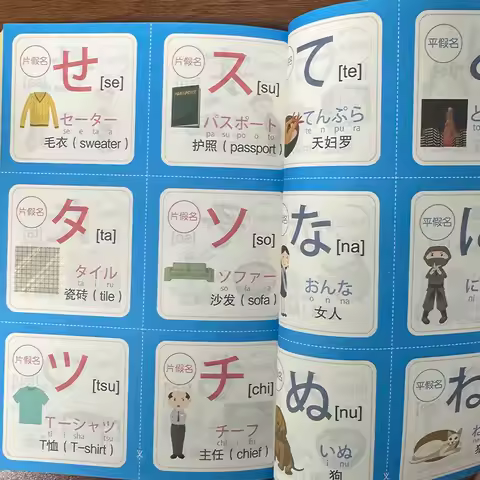 片假名
せ [se]
セーター
se e ta a
毛衣（sweater）
片假名
ス [su]
パスポート
pa su po o to
护照（passport）
て [te]
てんぷら
te n pu ra
天妇罗
平假名
片假名
タ [ta]
タイル
ta i ru
瓷砖（tile）
片假名
ソ [so]
ソファー
so fa a
沙发（sofa）
な [na]
おんな
o n na
女人
平假名
に
ni
片假名
ツ [tsu]
Tーシャツ
ti sha tsu
T恤（T-shirt）
片假名
チ [chi]
チーフ
chi i fu
主任（chief）
ぬ [nu]
いぬ
i nu
狗
平假名
ね